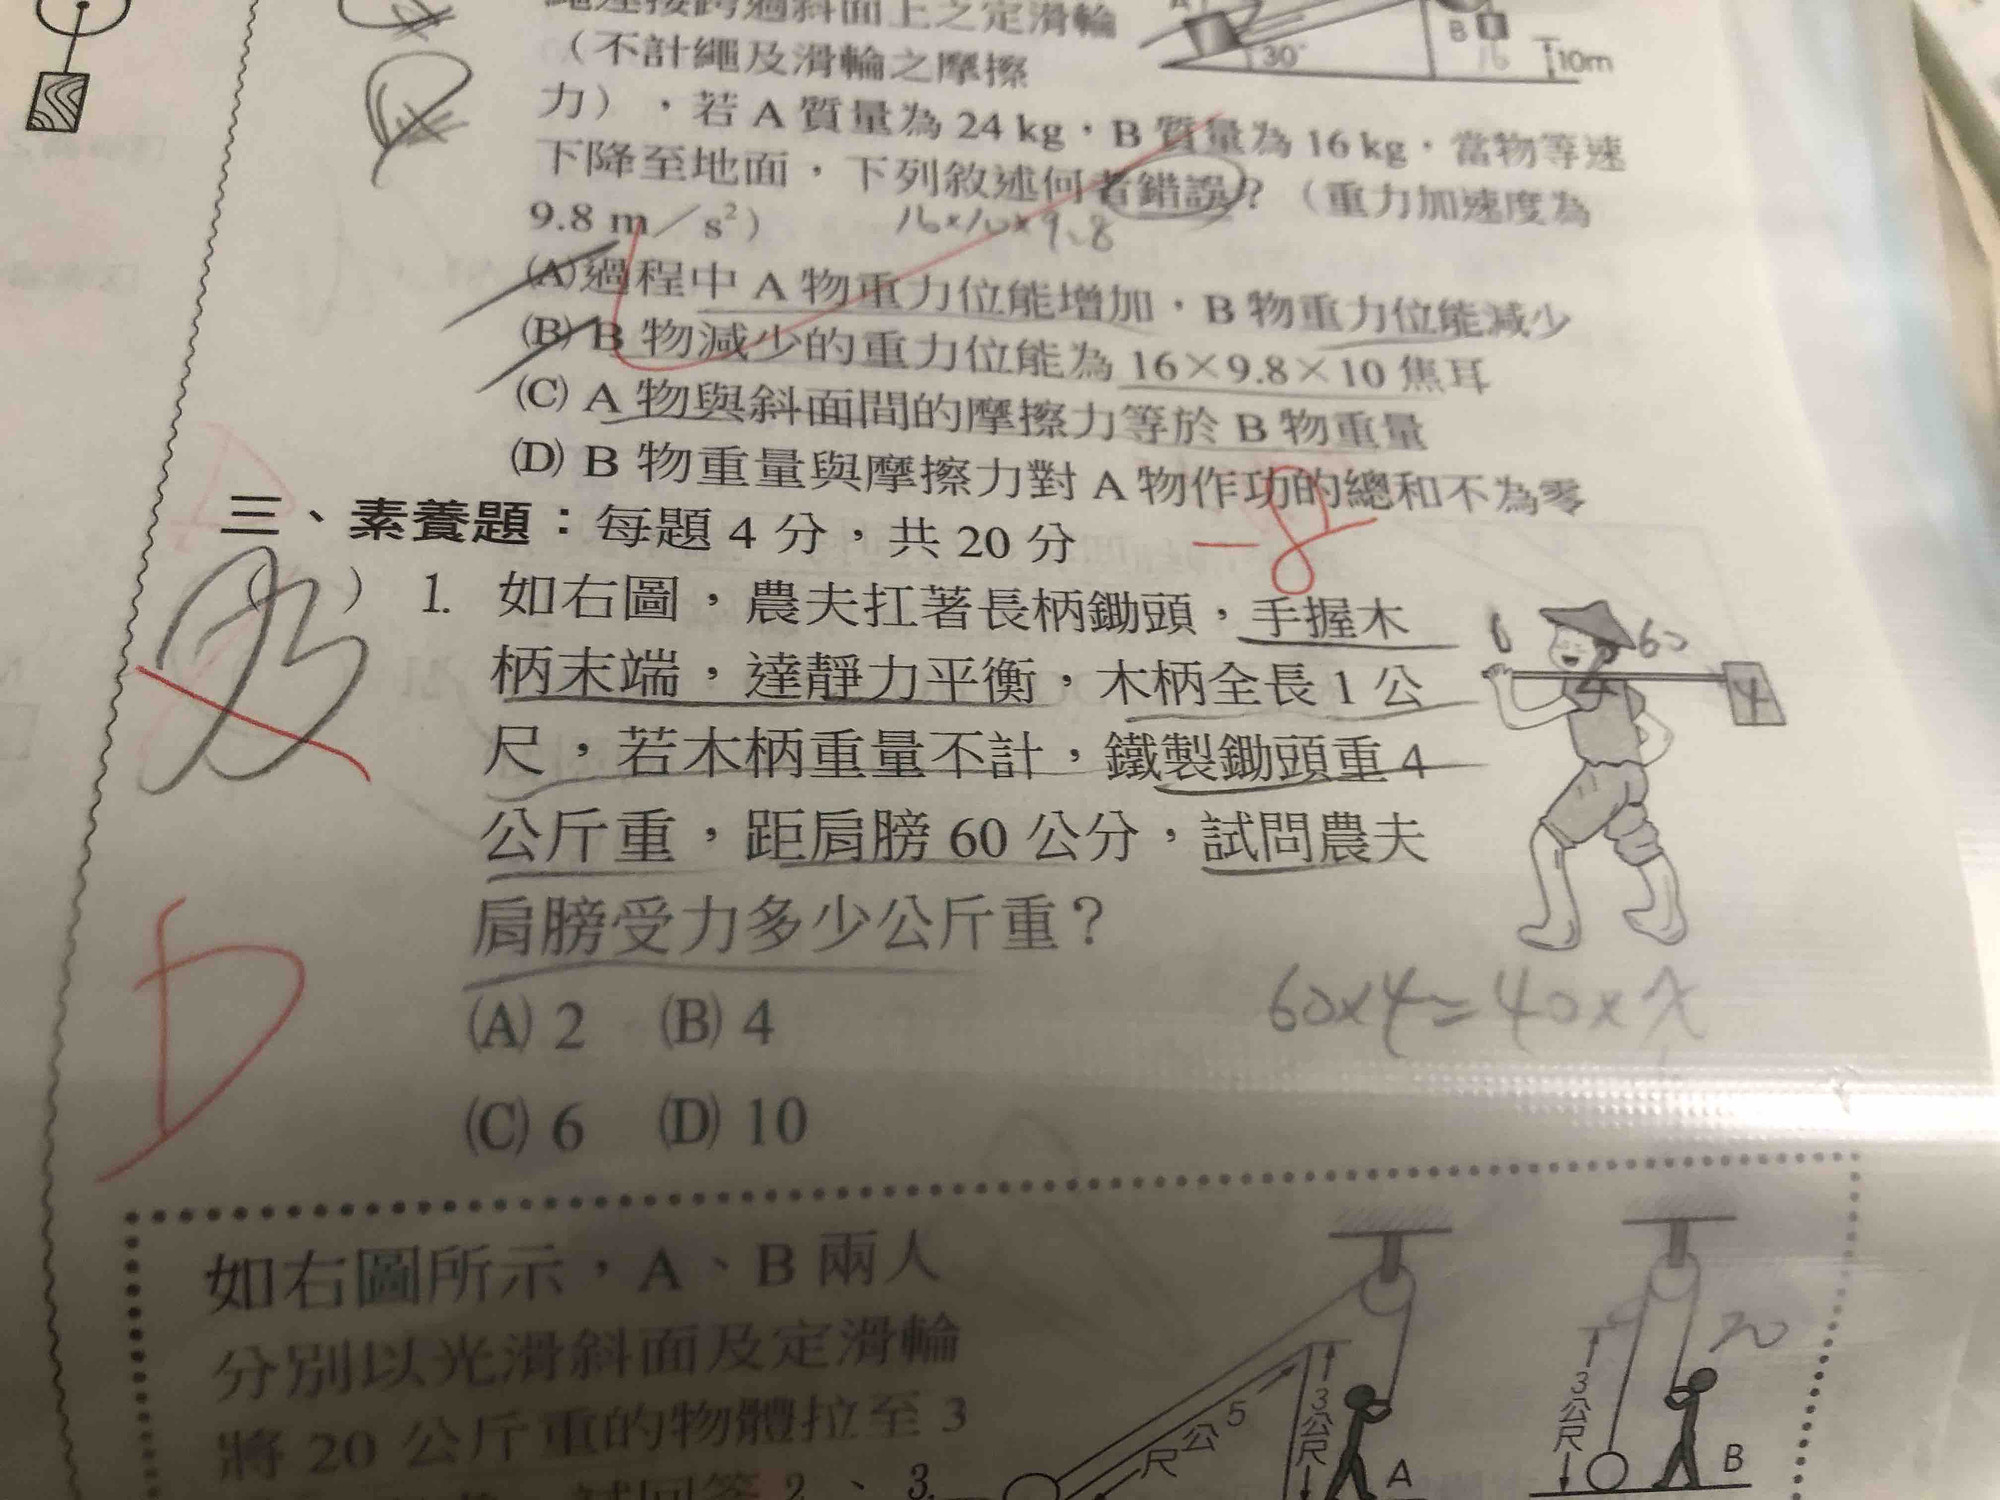 繩連接跨過斜面上之定滑輪
（不計繩及滑輪之摩擦
力），若 A 質量為 24 kg，B 質量為 16 kg，當物等速
下降至地面，下列敘述何者錯誤？（重力加速度為
9.8 m／s²）
16×10×9.8
(A)過程中 A 物重力位能增加，B 物重力位能減少
(B) B 物減少的重力位能為 16×9.8×10 焦耳
(C) A 物與斜面間的摩擦力等於 B 物重量
(D) B 物重量與摩擦力對 A 物作功的總和不為零
30°
B
16
10m
三、素養題：每題 4 分，共 20 分
-8
) 1. 如右圖，農夫扛著長柄鋤頭，手握木
柄末端，達靜力平衡，木柄全長 1 公
尺，若木柄重量不計，鐵製鋤頭重 4
公斤重，距肩膀 60 公分，試問農夫
肩膀受力多少公斤重？
(A) 2 (B) 4
(C) 6 (D) 10
60
4
60×4=40×x
D
如右圖所示，A、B 兩人
分別以光滑斜面及定滑輪
將 20 公斤重的物體拉至 3
試回答 2、3.
5
公
尺
3公尺
A
20
3公尺
B